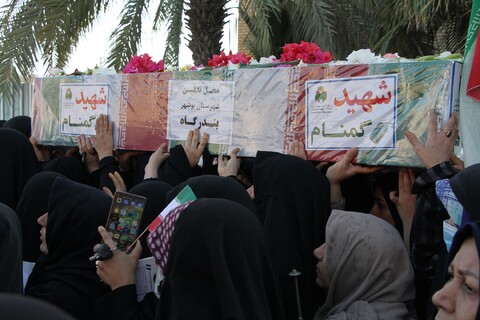 شهید
گمنام
محل تدفین
شهرستان بوشهر
بندرگاه
شهید
گمنام